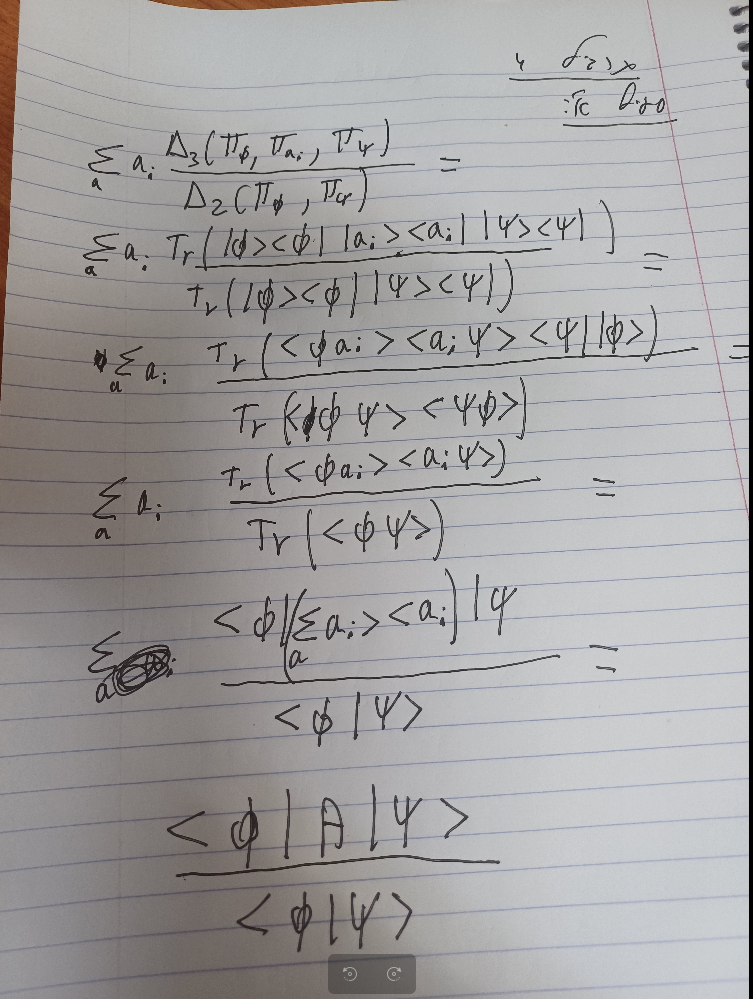 Σ_a a_i Δ₃(Π_ϕ, Π_{a_i}, Π_ψ) / Δ₂(Π_ϕ, Π_ψ) =
Σ_a a_i Tr(|ϕ><ϕ| |a_i><a_i| |ψ><ψ|) / Tr(|ϕ><ϕ| |ψ><ψ|) =
Σ_a a_i Tr(<ϕ a_i><a_i ψ><ψ||ϕ>) / Tr(<ϕ ψ><ψϕ>) =
Σ_a a_i Tr(<ϕ a_i><a_i ψ>) / Tr(<ϕ ψ>) =
Σ_a <ϕ|(Σ_a a_i><a_i)|ψ / <ϕ|ψ> =
<ϕ|A|ψ> / <ϕ|ψ>